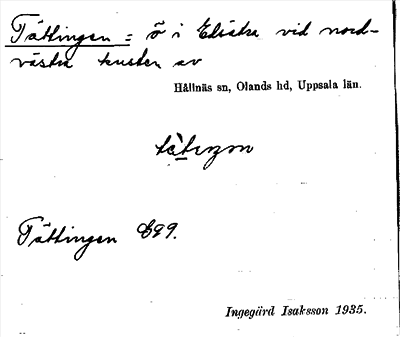 Tättingen = ö i Edsätra vid nord-
västra kusten av
Hållnäs sn, Olands hd, Uppsala län.
Tättingen E99.
Ingegärd Isaksson 1935.